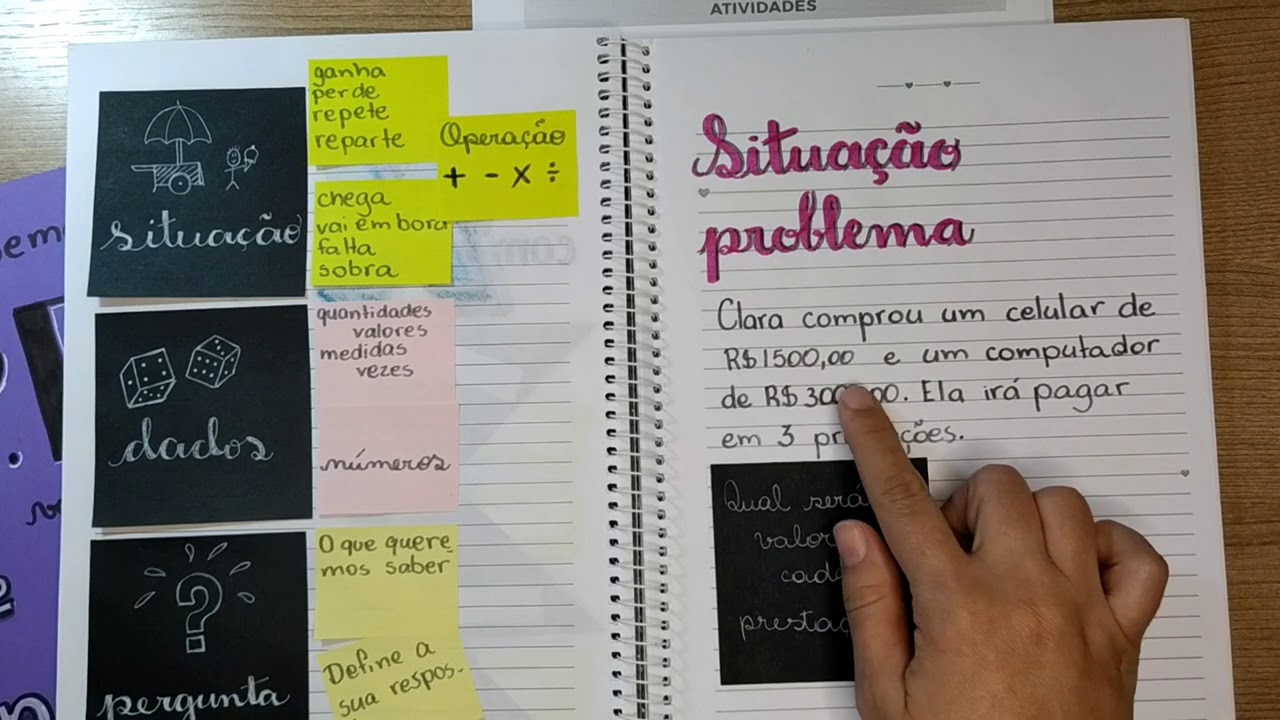 ATIVIDADES
situação
ganha
perde
repete
reparte
Operação
+ - x ÷
chega
vai embora
falta
sobra
dados
quantidades
valores
medidas
vezes
números
pergunta
O que quere
mos saber
Define a
sua respos-
Situação
problema
Clara comprou um celular de
R$1500,00 e um computador
de R$ . Ela irá pagar
em 3
Qual será
valor
prestaç